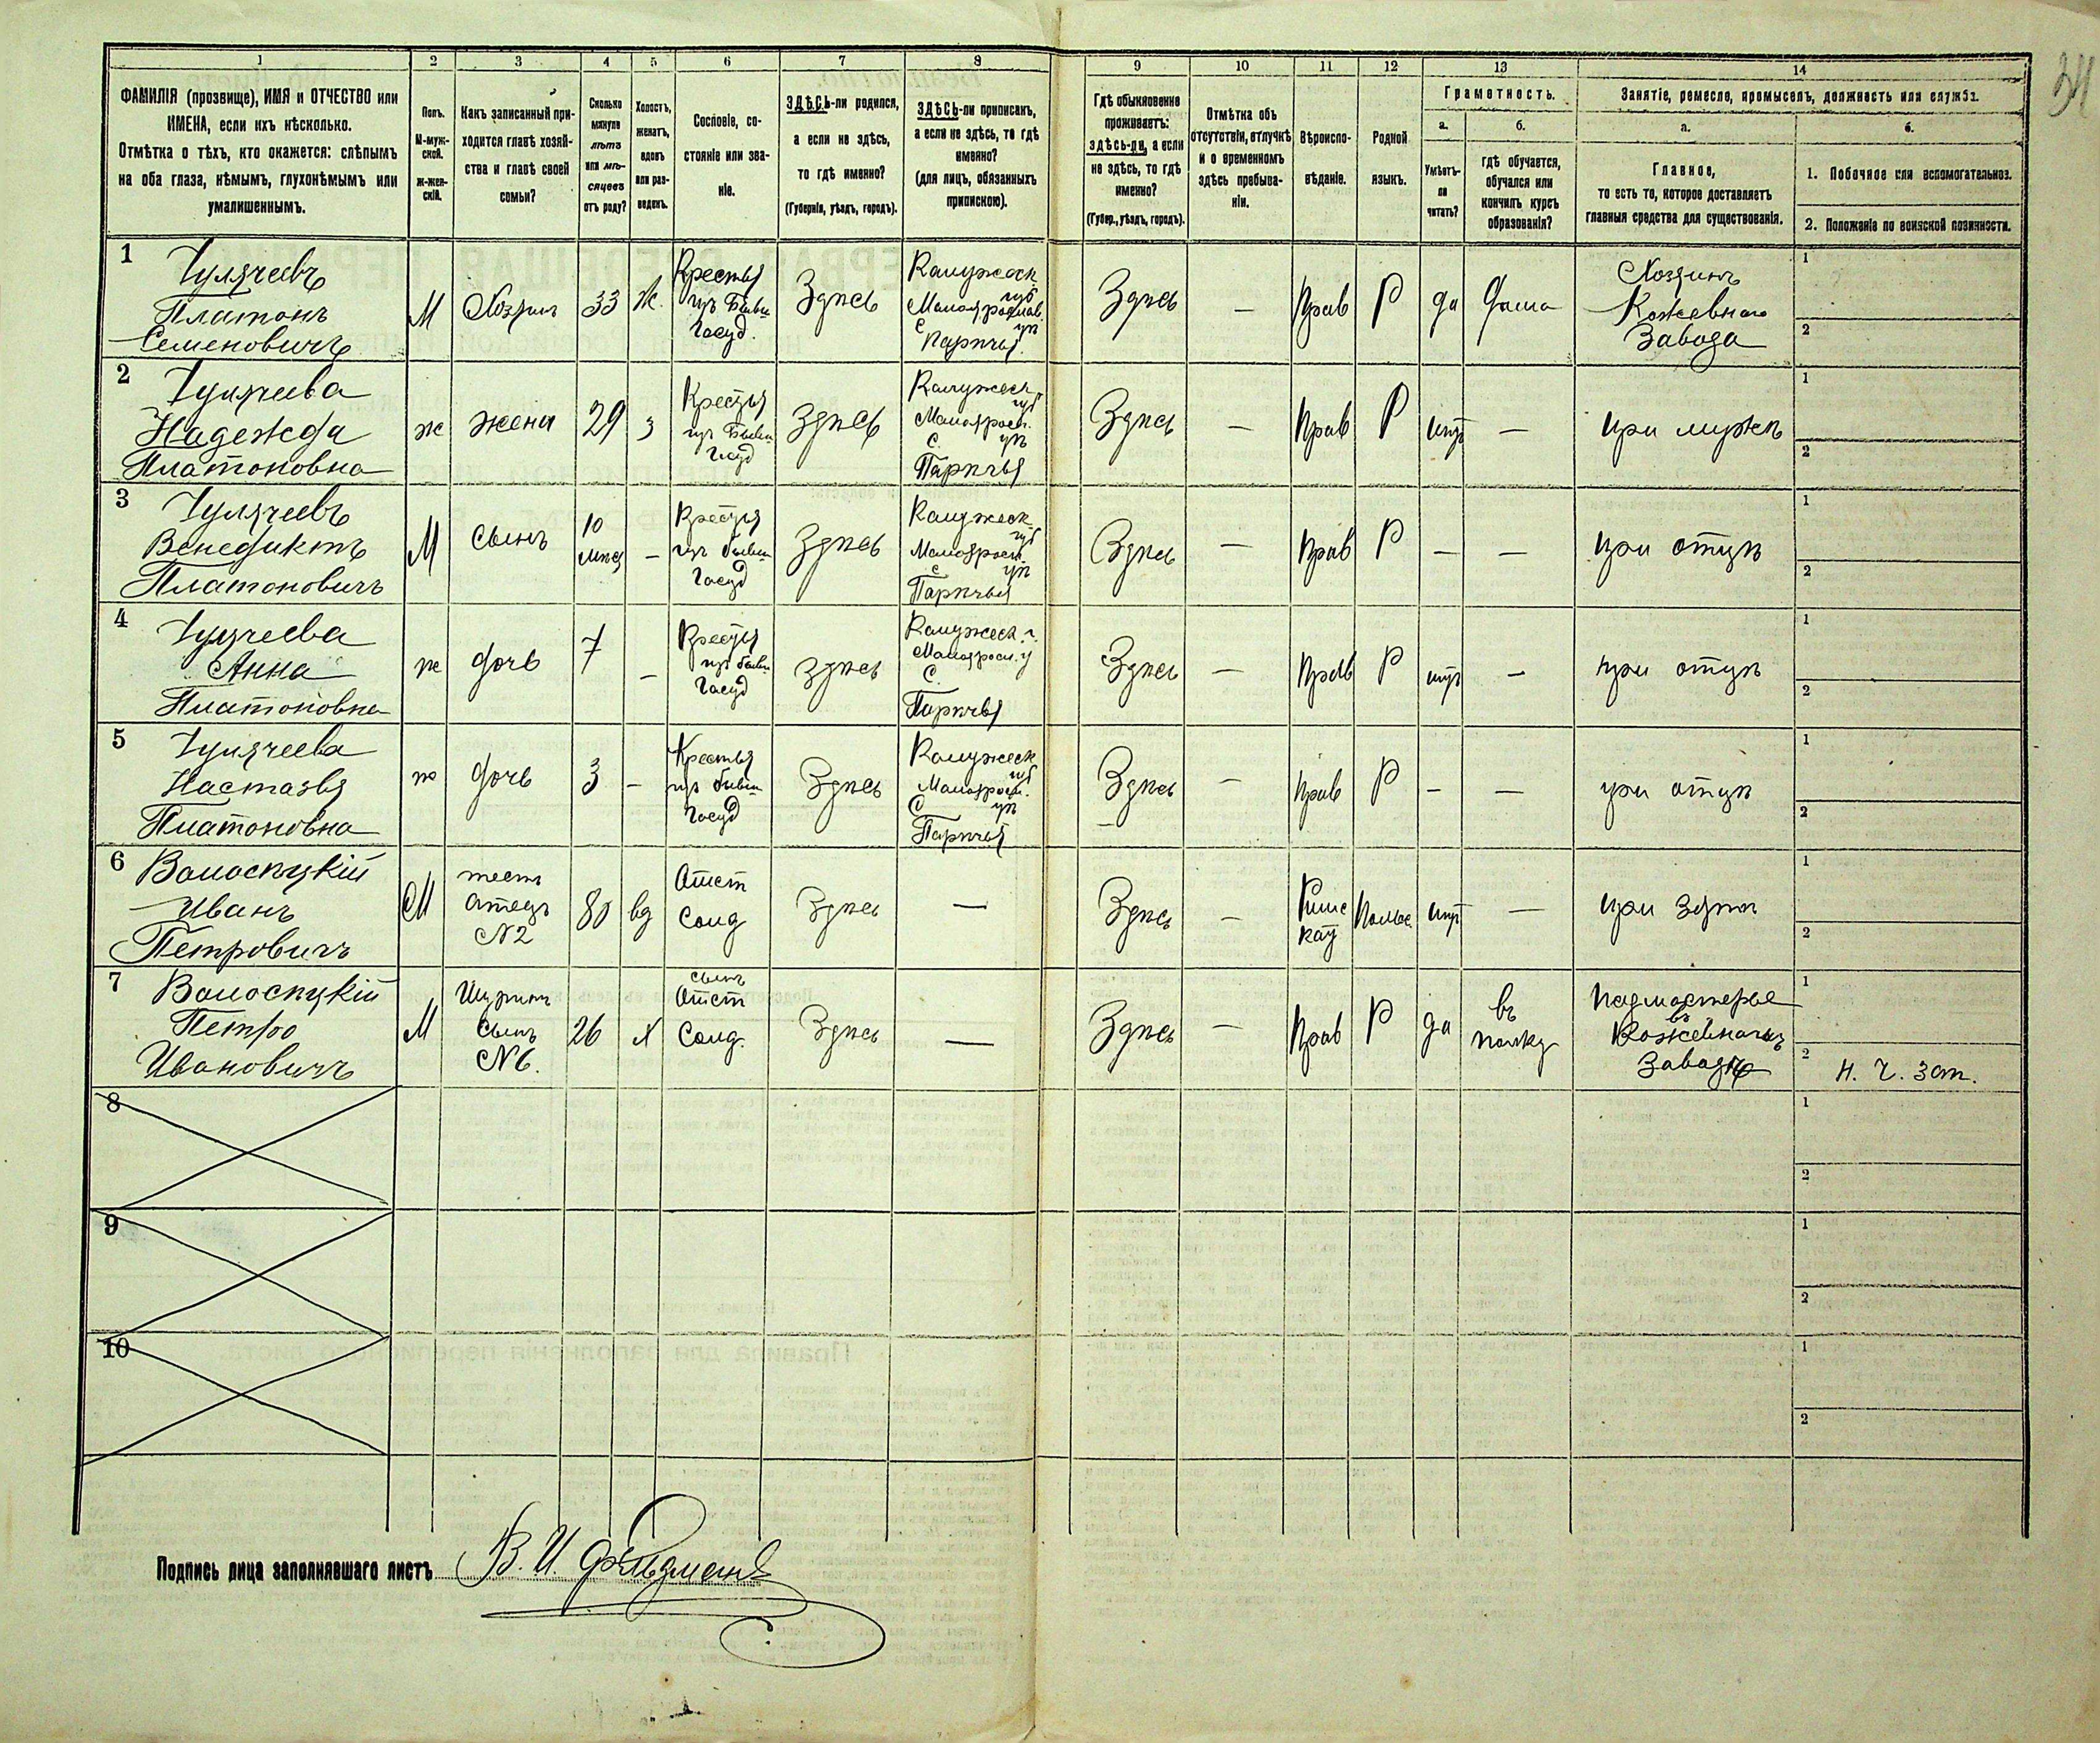 34
1 2 3 4 5 6 7 8 9 10 11 12 13 14
ФАМИЛІЯ (прозвище), ИМЯ и ОТЧЕСТВО или
ИМЕНА, если ихъ нѣсколько.
Отмѣтка о тѣхъ, кто окажется: слѣпымъ
на оба глаза, нѣмымъ, глухонѣмымъ или
умалишеннымъ.
Полъ.
М-муж-
ской.
ж-жен-
скій.
Какъ записанный при-
ходится главѣ хозяй-
ства и главѣ своей
семьи?
Сколько
минуло
лѣтъ
или мѣ-
сяцевъ
отъ роду?
Холостъ,
женатъ,
вдовъ
или раз-
веденъ.
Сословіе, со-
стояніе или зва-
ніе.
ЗДѢСЬ-ли родился,
а если не здѣсь,
то гдѣ именно?
(Губернія, уѣздъ, городъ).
ЗДѢСЬ-ли приписанъ,
а если не здѣсь, то гдѣ
именно?
(для лицъ, обязанныхъ
припискою).
Гдѣ обыкновенно
проживаетъ:
здѣсь-ли, а если
не здѣсь, то гдѣ
именно?
(Губер., уѣздъ, городъ).
Отмѣтка объ
отсутствіи, отлучкѣ
и о временномъ
здѣсь пребыва-
ніи.
Вѣроиспо-
вѣданіе.
Родной
языкъ.
Грамотность.
а.
Умѣетъ-
ли
читать?
б.
гдѣ обучается,
обучался или
кончилъ курсъ
образованія?
Занятіе, ремесло, промыселъ, должность или служба.
а.
Главное,
то есть то, которое доставляетъ
главныя средства для существованія.
б.
1. Побочное или вспомогательное.
2. Положеніе по воинской повинности.
1
Платонъ
Семеновичъ
М
Хозяинъ
33
Ж.
Крестья
изъ Бывш
Госуд.
Здѣсь
Калужеск
губ
уѣ
с
Здѣсь
—
Прав
Р
да
дома
Хозяинъ
Кожевнаго
Завода
1
2
2
Надежда
Платоновна
ж
жена
29
з
Крестья
изъ Бывш
Госуд
Здѣсь
Калужеск
губ
уѣ
с.
Здѣсь
—
Прав
Р
нѣт
—
при мужѣ
1
2
3
Венедиктъ
Платоновичъ
М
сынъ
10
мѣсц
—
Крестья
изъ бывш
Госуд
Здѣсь
Калужеск
губ
уѣ
с
Здѣсь
—
Прав
Р
—
—
при отцѣ
1
2
4
Анна
Платоновна
ж
дочь
7
—
Крестья
изъ бывш
Госуд
здѣсь
Калужеск. г.
С.
Здѣсь
—
Прав
Р
нѣт
—
при отцѣ
1
2
5
Настазья
Платоновна
ж
дочь
3
—
Крестья
изъ бывш
Госуд
Здѣсь
Калужеск
губ
уѣ
С
Здѣсь
—
Прав
Р
—
—
при отцѣ
1
2
6
Иванъ
Петровичъ
М
тесть
Отецъ
№2
80
вд
Отст
Солд
Здѣсь
—
Здѣсь
—
Римс
кат
Польс.
нѣт
—
при зятѣ
1
2
7
Петръ
Ивановичъ
М
Шуринъ
Сынъ
№6.
26
х
сынъ
Отст
Солд.
Здѣсь
—
Здѣсь
—
Прав
Р
да
въ
полку
Подмастерье
въ
Кожевномъ
Заводѣ
1
2
Н. Ч. зап.
8
1
2
9
1
2
10
1
2
Подпись лица заполнявшаго листъ В. И. Фельдманъ